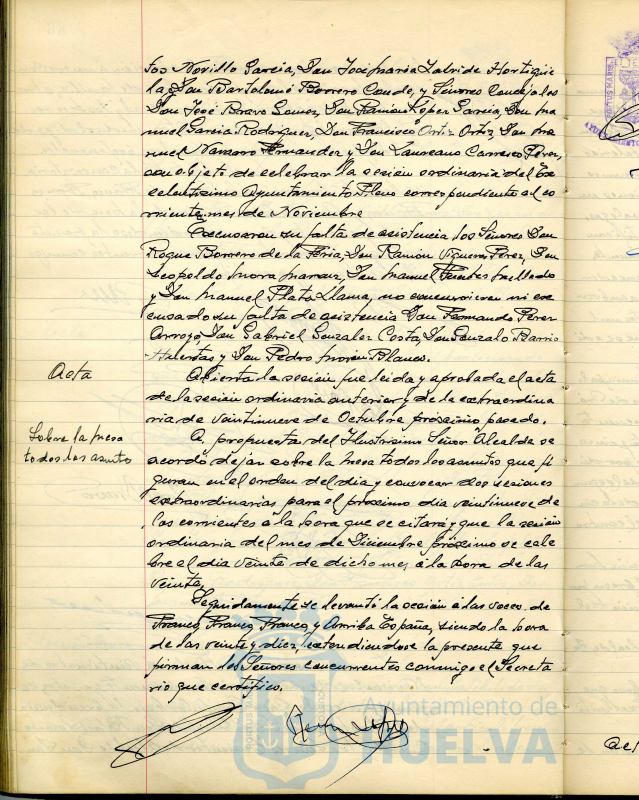 tos Novillo García, Don José María Zalvide Hortigüe
la, Don Bartolomé Borrero Conde, y Señores Concejales
Don José Bravo Gomez, Don Ramón López García, Don Ma
nuel García Rodriguez, Don Francisco Ortiz Ortiz, Don Ma
nuel Navarro Fernandez y Don Laureano Carrasco Perez,
con objeto de celebrar la sesión ordinaria del Ex
celentísimo Ayuntamiento Pleno correspondiente al co
rriente mes de Noviembre
Excusaron su falta de asistencia los Señores Don
Roque Borrero de la Feria, Don Ramón Vigueras Pérez, Don
Leopoldo Mora Don Manuel Fuentes
y Don Manuel Plata Llama, no concurrieron ni ex
cusado su falta de asistencia Don Fernando Pérez
Arroyo, Don Gabriel Gonzalez Costa, Don Gonzalo Barrio
Huertas y Don Pedro Morón Blanco.
Acta
Abierta la sesión fue leida y aprobada el acta
de la sesión ordinaria anterior y de la extraordina
ria de veintinueve de Octubre próximo pasado.
Sobre la mesa
todos los asunto
A propuesta del Ilustrisimo Señor Alcalde se
acordó dejar sobre la mesa todos los asuntos que fi
guran en el orden del dia y convocar dos sesiones
extraordinarias para el próximo dia veintinueve de
los corrientes á la hora que se citará y que la sesión
ordinaria del mes de Diciembre próximo se cele
bre el dia veinte de dicho mes, á la hora de las
veinte.
Seguidamente se levantó la sesión á las voces de
Franco, Franco, Franco, y Arriba España, siendo la hora
de las veinte y diez, extendiendose la presente que
firman los Señores concurrentes conmigo el Secreta
rio que certifico.
Ayuntamiento de
HUELVA